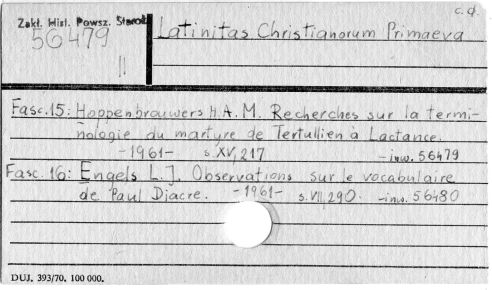 c.d.
Zakł. Hist. Powsz. Staroż.
56479
II
Latinitas Christianorum Primaeva
Fasc. 15: Hoppenbrouwers H. A. M. Recherches sur la termi-
nologie du martyre de Tertullien à Lactance.
-1961- s. XV, 217 -inw. 56479
Fasc. 16: Engels L. J. Observations sur le vocabulaire
de Paul Diacre. -1961- s. VII, 290. -inw. 56480
DUJ. 393/70. 100 000.